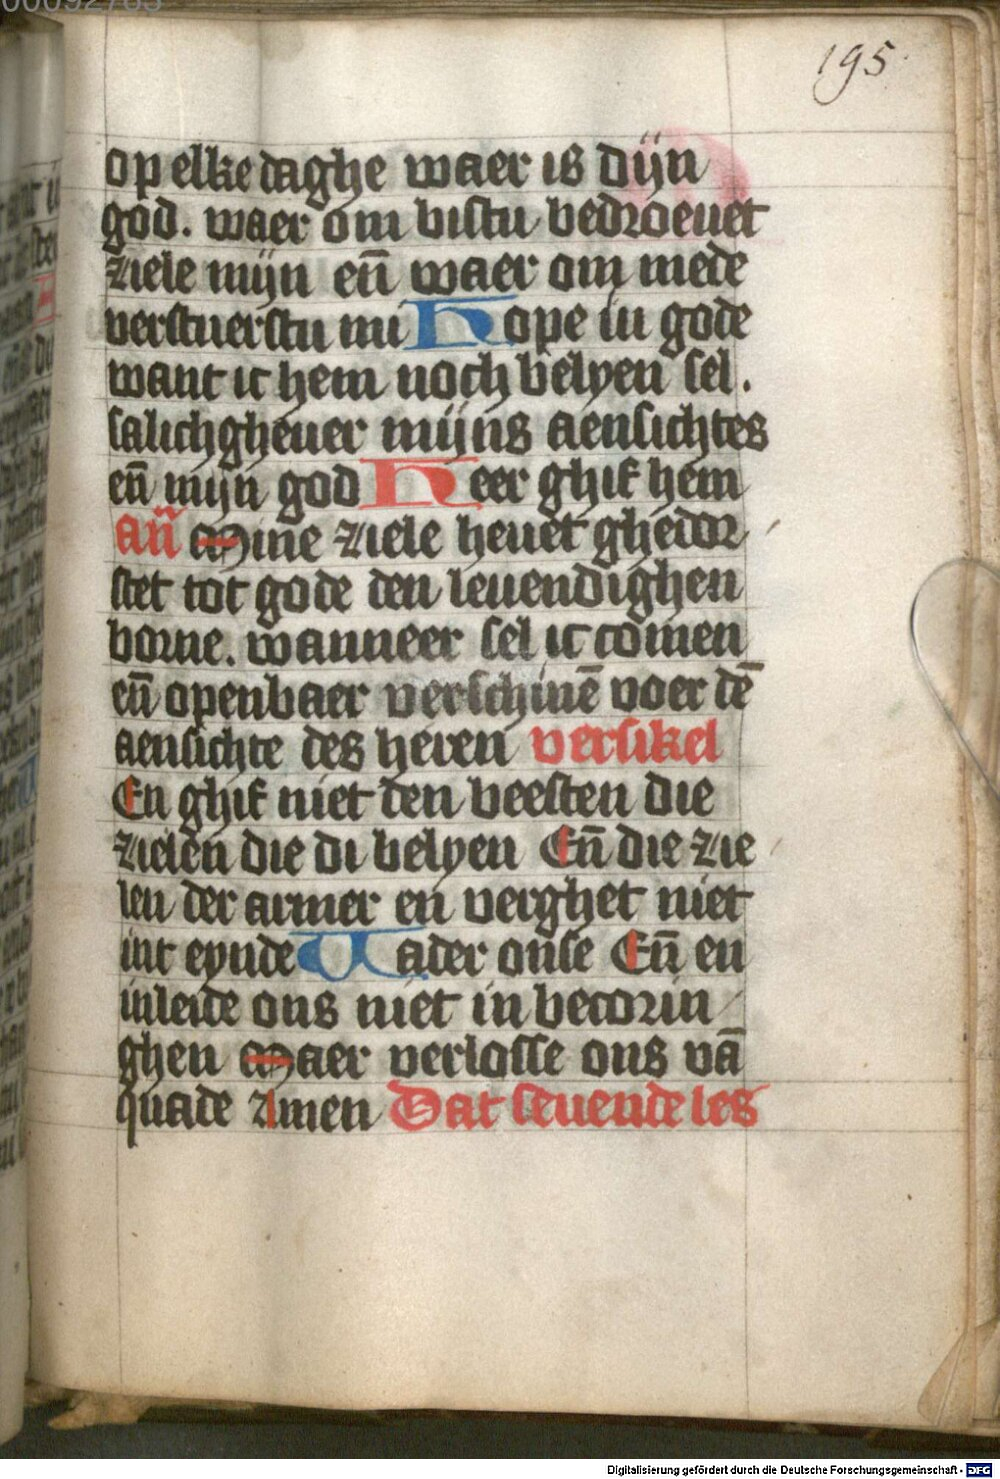 00092785
195.
op elke daghe waer is dijn
god. waer om bistu bedroeuet
ziele mijn en̄ waer om mede
verstuerstu mi Hope in gode
want ic hem noch belyen sel.
salichgheuer mijns aensichtes
en̄ mijn god Heer ghif hem
An̄ Mine ziele heuet ghedor
stet tot gode den leuendighen
borne. wanneer sel ic comen
en̄ openbaer verschinē voer dē
aensichte des heren versikel
En ghif niet den beesten die
zielen die di belyen En̄ die zie
len der armer en verghet niet
int eynde Vader onse En̄ en
inleide ons niet in becorin
ghen Maer verlosse ons vā
quade Amen Dat seuende les
Digitalisierung gefördert durch die Deutsche Forschungsgemeinschaft - DFG